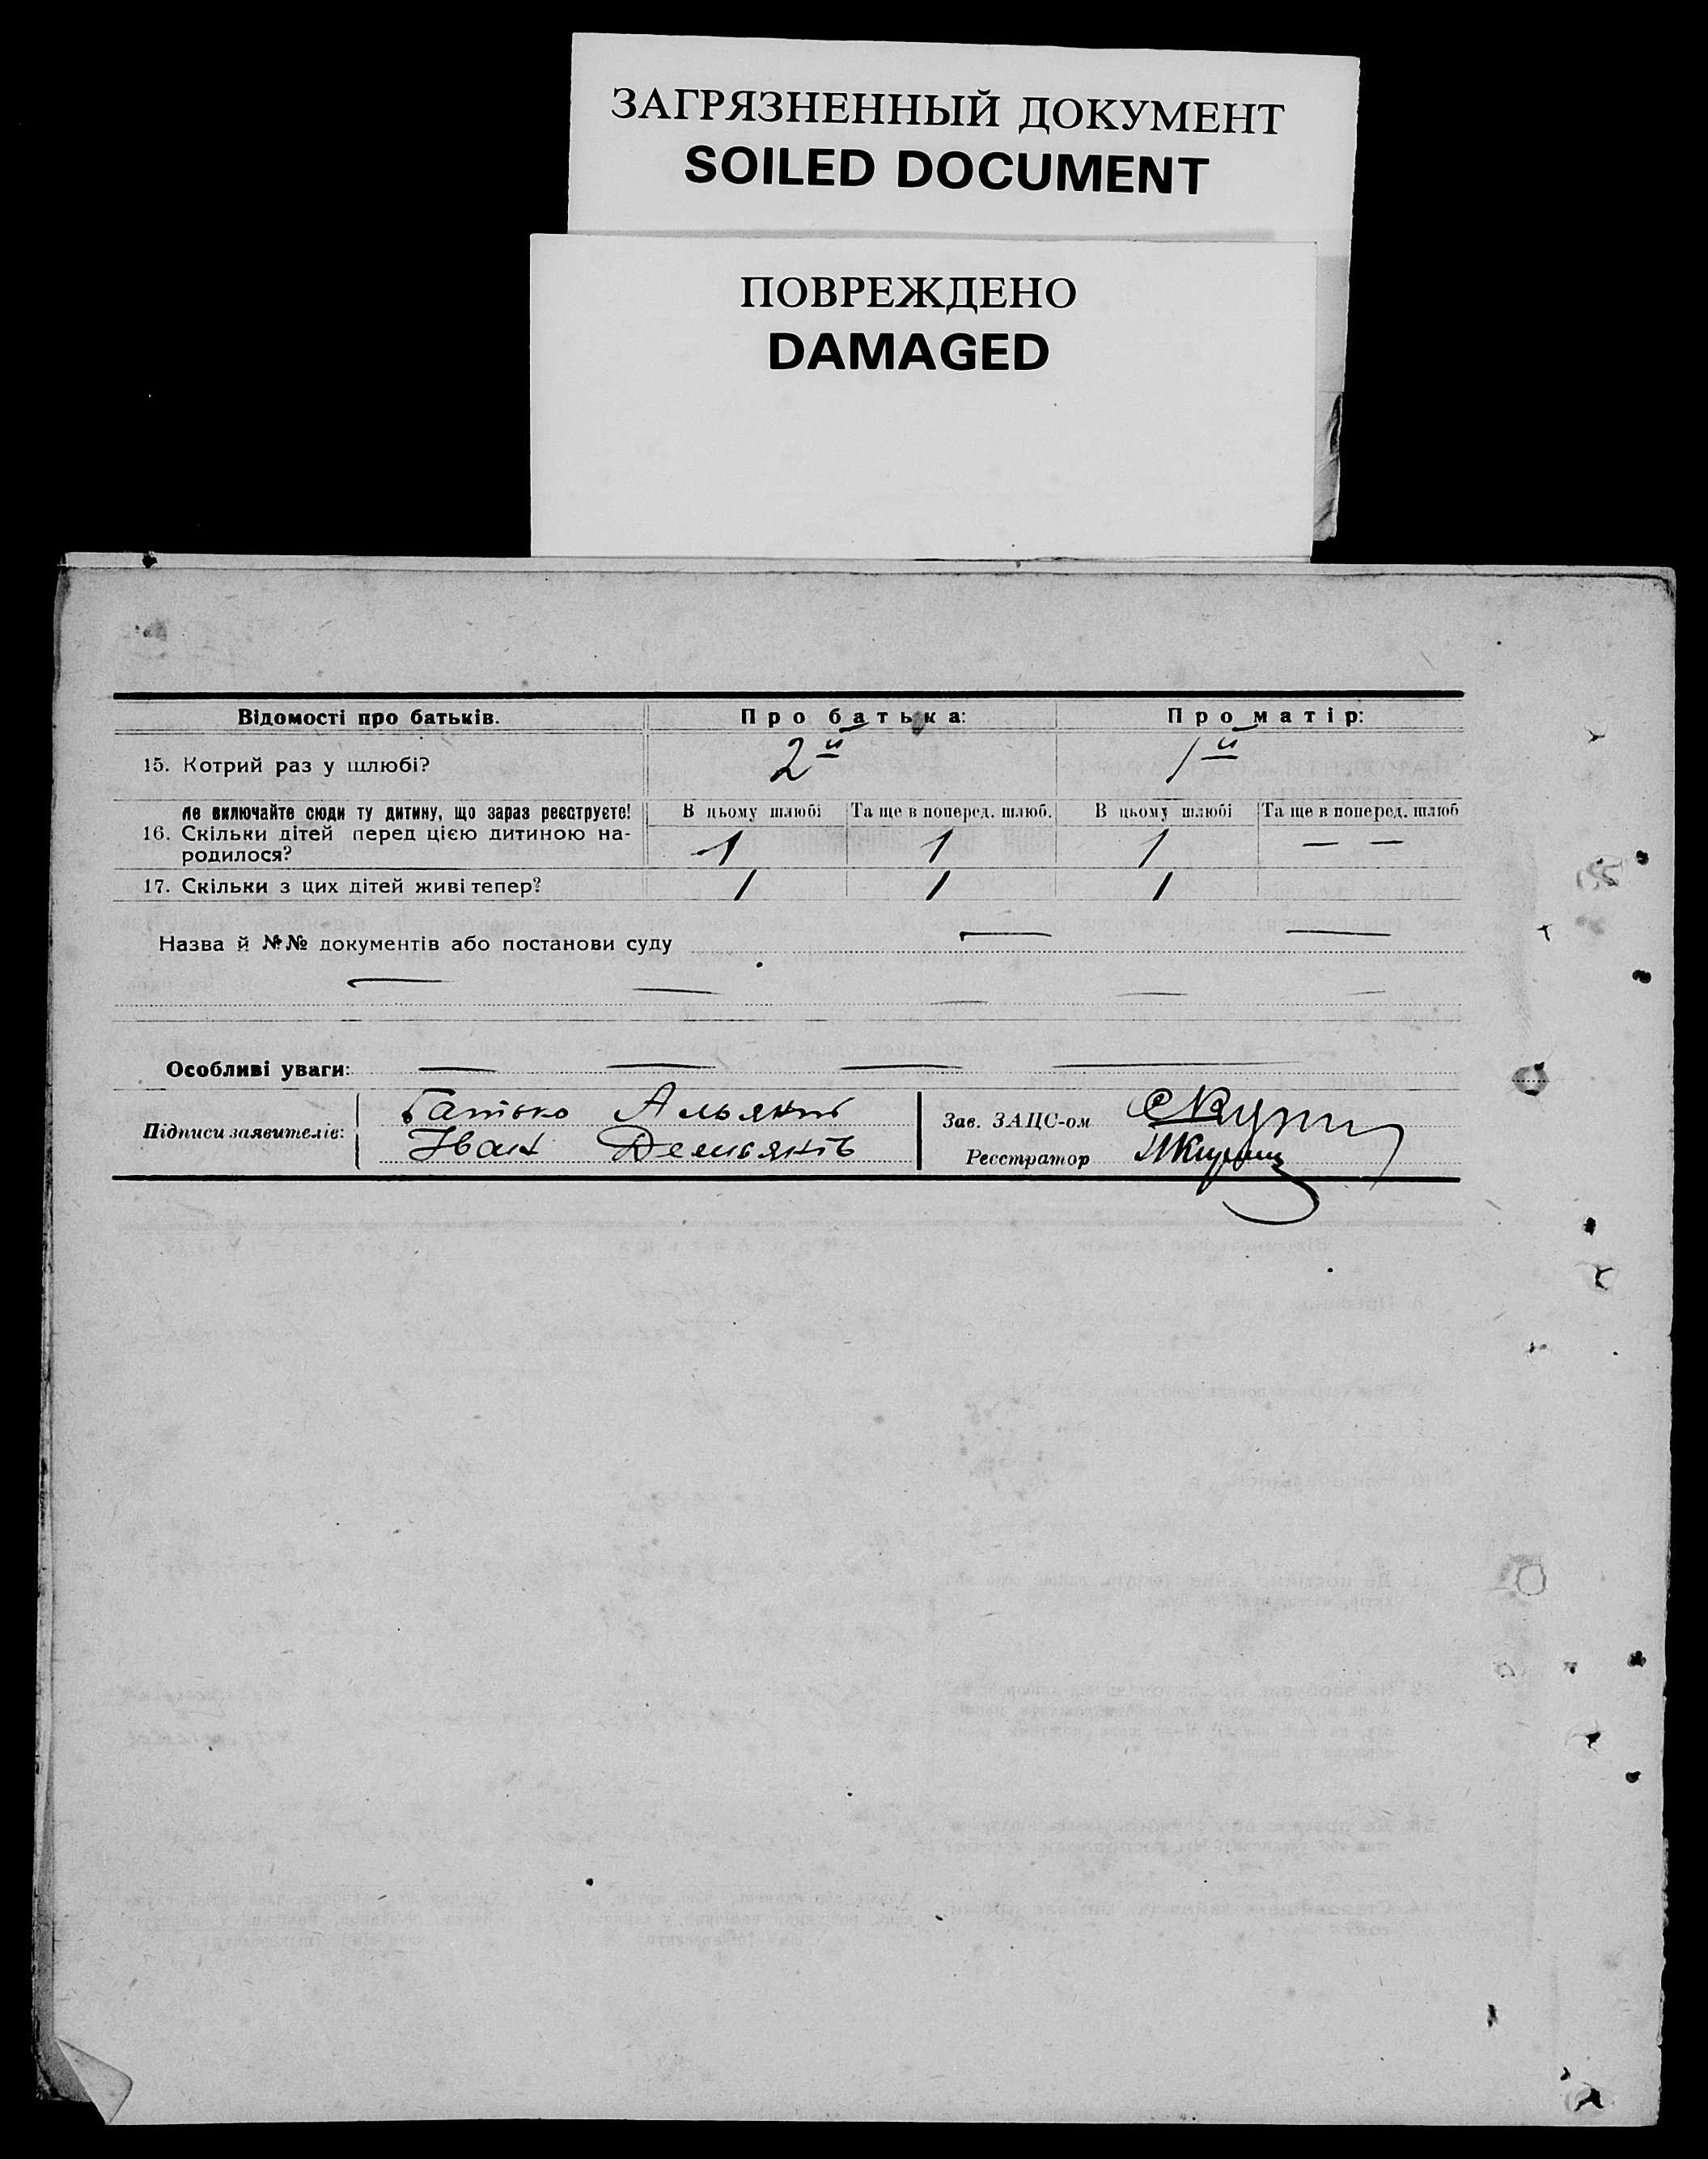 ЗАГРЯЗНЕННЫЙ ДОКУМЕНТ
SOILED DOCUMENT
ПОВРЕЖДЕНО
DAMAGED
Відомості про батьків. Про батька: Про матір:
15. Котрий раз у шлюбі? 2й 1й
Не включайте сюди ту дитину, що зараз реєструєте! В цьому шлюбі Та ще в поперед. шлюб. В цьому шлюбі Та ще в поперед. шлюб
16. Скільки дітей перед цією дитиною на-
родилося? 1 1 1 — —
17. Скільки з цих дітей живі тепер? 1 1 1
Назва й №№ документів або постанови суду — —
— — — — —
Особливі уваги: — — — —
Підписи заявителів: Батько
Іван Демьянів
Зав. ЗАЦС-ом
Реєстратор